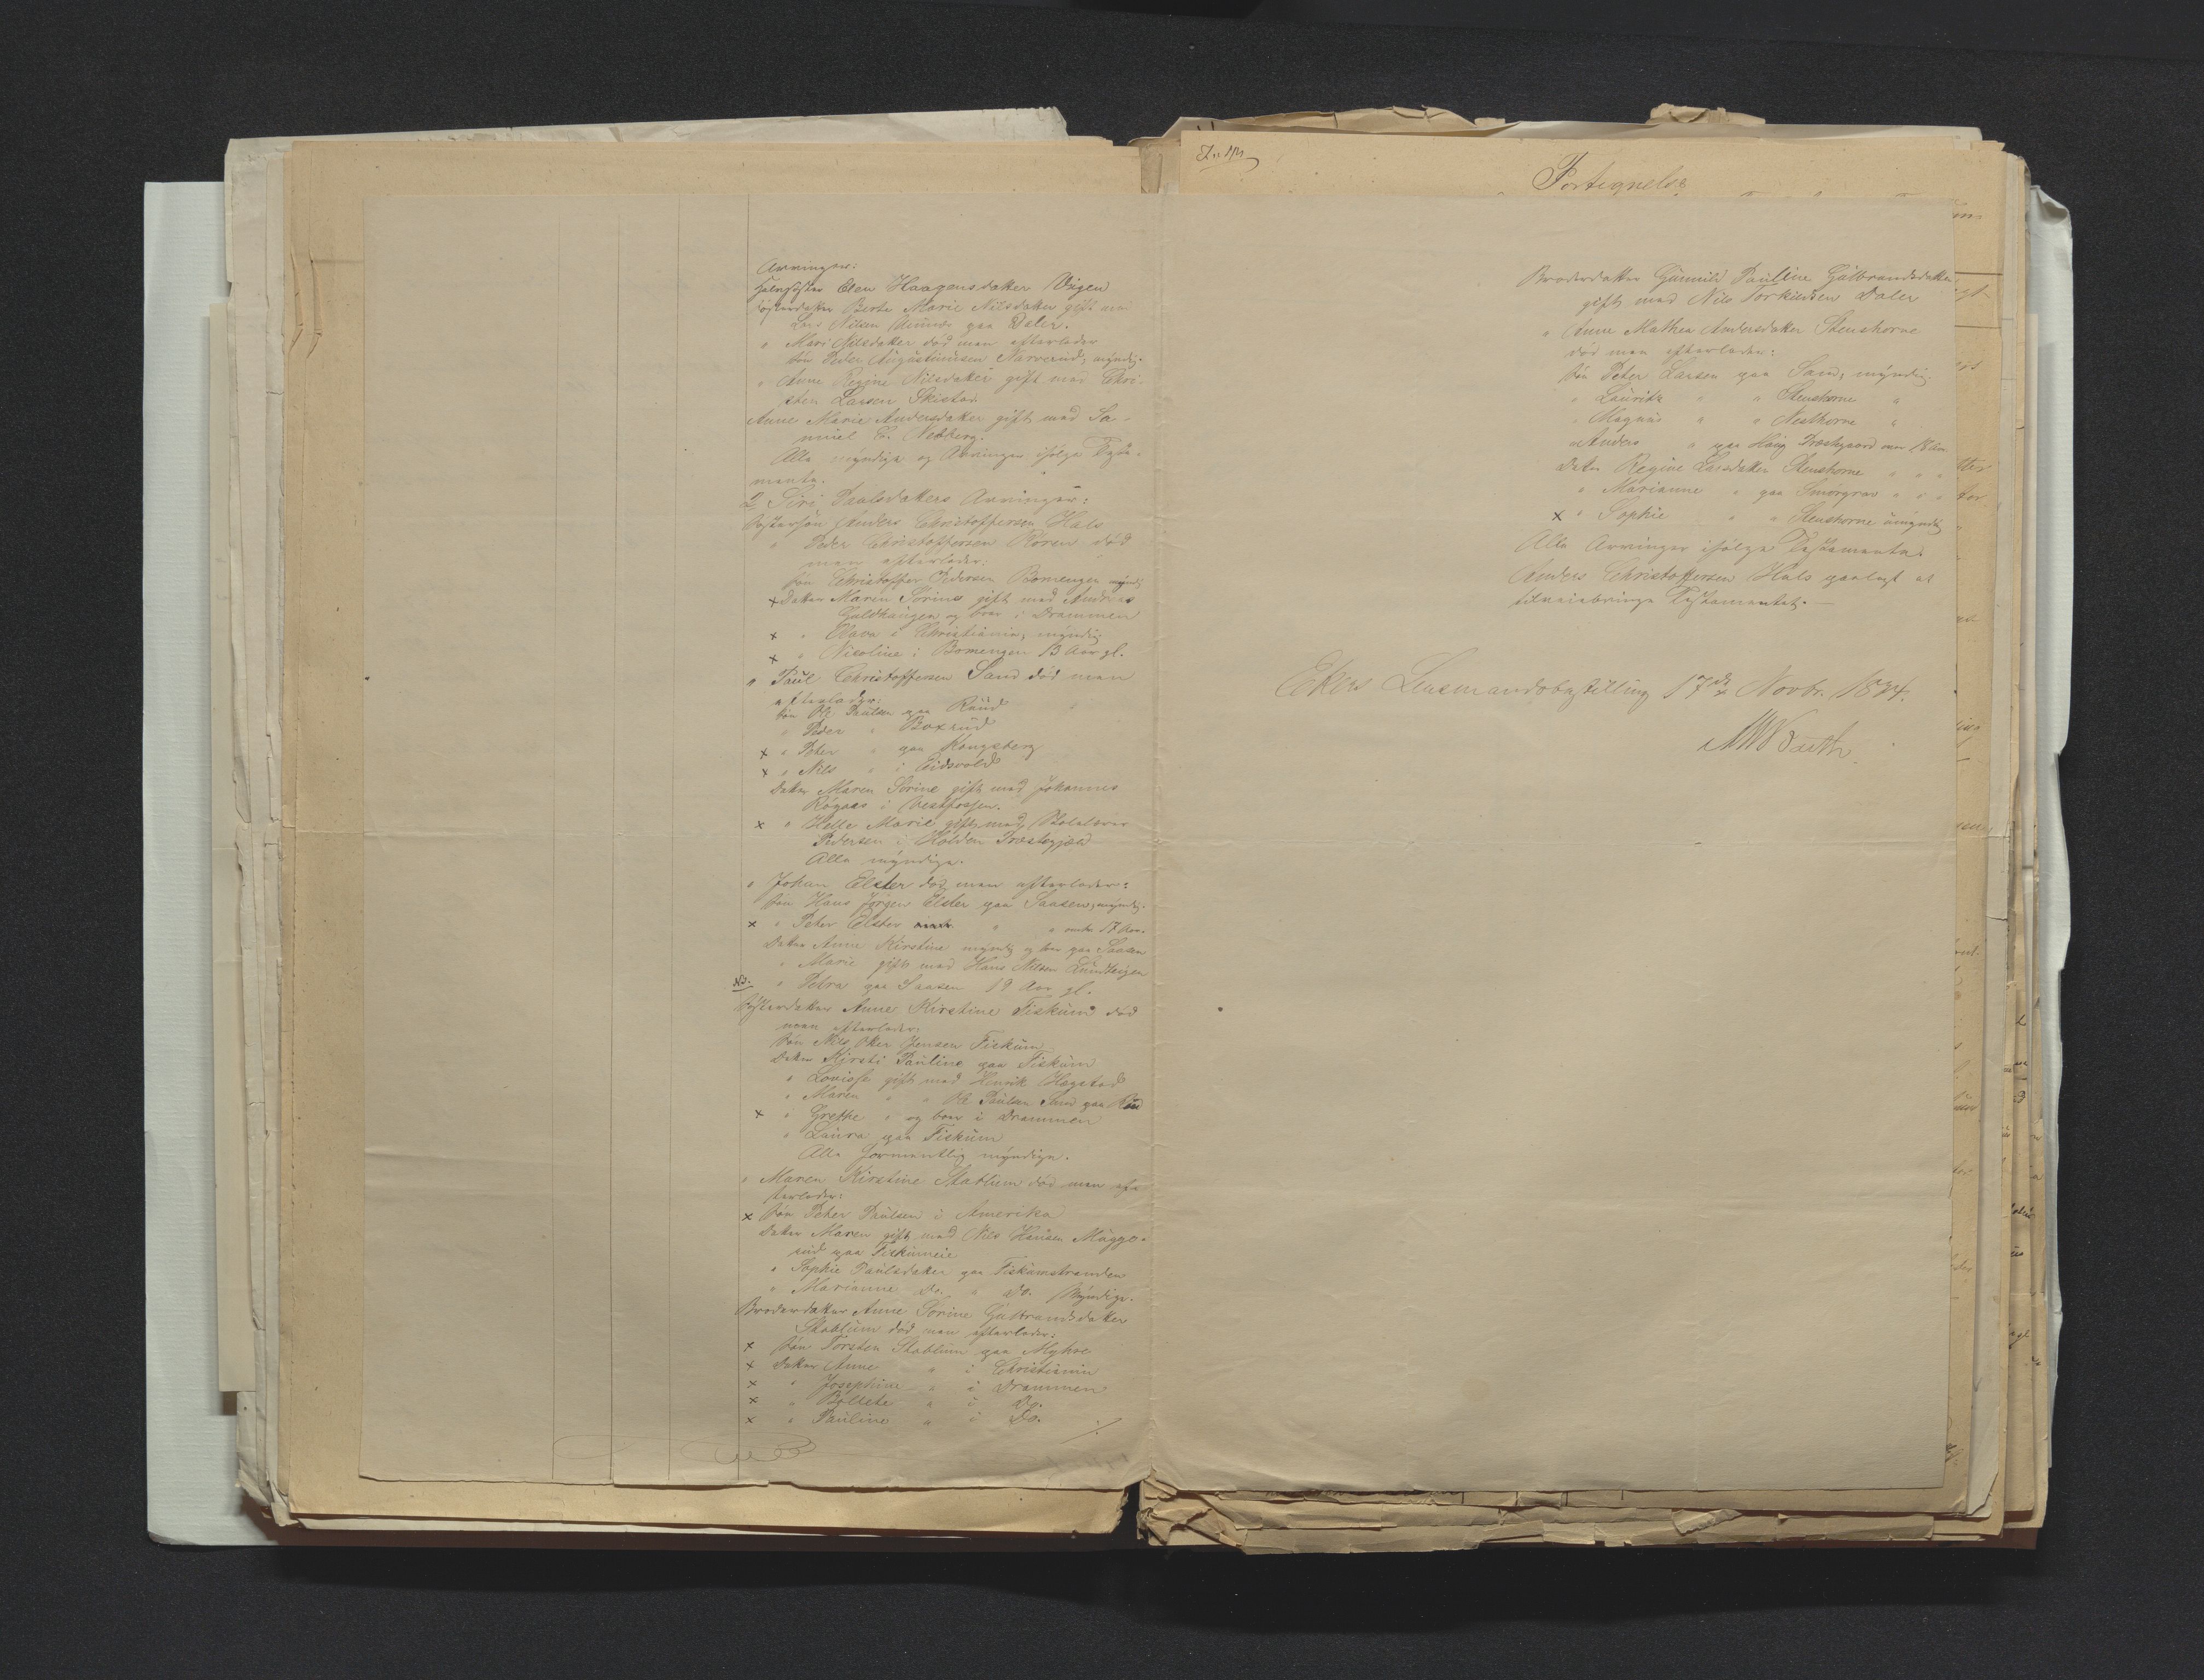 Arvinger:
Halvsøster Elen Haagensdatter Vegen
Søsterdatter Berte Marie Nilsdatter gift med
Lars Nilsen paa Daler.
" Mari Nilsdatter død men efterlader
Søn Peder Augustinusen Narverud, myndig.
" Anne Regine Nilsdatter gift med Chri-
sten Larsen Skistad
Anne Marie Andersdatter gift med Sa-
muel E. Nedberg.
Alle myndige og Arvinger ifølge Testa-
mente.
2, Siri Paulsdatters Arvinger:
Søstersøn Anders Christoffersen Hals
" Peder Christoffersen Røren død
men efterlader:
Søn Christoffer Pedersen Bomengen myndig
x Datter Maren Sorine gift med Andreas
Guldhaugen og boer i Drammen
x " Olava i Christiania, myndig
x " Nicoline i Bomengen 13 Aar gl.
" Paul Christoffersen Sand død men
efterlader:
Søn Ole Paulsen paa Ruud
" Peder " Boxrud
x " Peter " paa Kongsberg
x " Nils " i Eidsvold
Datter Maren Sorine gift med Johannes
Røgaas i Vestfossen.
x " Helle Marie gift med Skolelærer
Pedersen i Holden Præstegjæld
Alle myndige.
" Johan Elster død men efterlader:
Søn Hans Jørgen Elster paa Saasen, myndig.
x " Peter Elster " " 17 Aar.
Datter Anne Kirstine myndig og boer paa Saasen
" Marie gift med Hans Nilsen Lundteigen
NB. " Petra paa Saasen 19 Aar gl.
Søsterdatter Anne Kirstine Fiskum død
men efterlader:
Søn Nils Oker Jensen Fiskum
Datter Kirsti Pauline paa Fiskum
" Lovisse gift med Henrik Hagstad
" Maren " " Ole Paulsen Sand paa Ruud
x " Grethe " og boer i Drammen
" Laura paa Fiskum
Alle formentlig myndige.
" Maren Kirstine Stablum død men ef-
terlader:
x Søn Peter Paulsen i Amerika
Datter Maren gift med Nils Hansen Mugge-
rud paa Fiskumeie
" Sophie Paulsdatter paa Fiskumstranden
" Marianne do. " do. Myndige.
Broderdatter Anne Sorine Gulbrandsdatter
Stablum død men efterlader:
x Søn Torsten Stablum paa Myhre
x Datter Anne " i Christiania
x " Josephine " i Drammen
x " " i Do.
x " Pauline " i Do.
./.
Fortegnelse
Broderdatter Gunnild Pauline Gulbrandsdatter
gift med Nils Torkildsen Daler
" Anne Mathea Andersdatter Stenshorne
død men efterlader:
Søn Peter Larsen paa Sand, myndig.
" Lauritz " " Stenshorne "
" Magnus " " Nesthorne "
" Anders " paa Houg Præstegaard over 18 Aar
Datter Regine Larsdatter Stenshorne " " "
" Marianne " paa Smørgrav " " "
x " Sophie " " Stenshorne umyndig
Alle Arvinger ifølge Testamente.
Anders Christoffersen Hals paalagt at
tilveiebringe Testamentet. —
Ekers Lensmandsbestilling 17de Novbr. 1874.